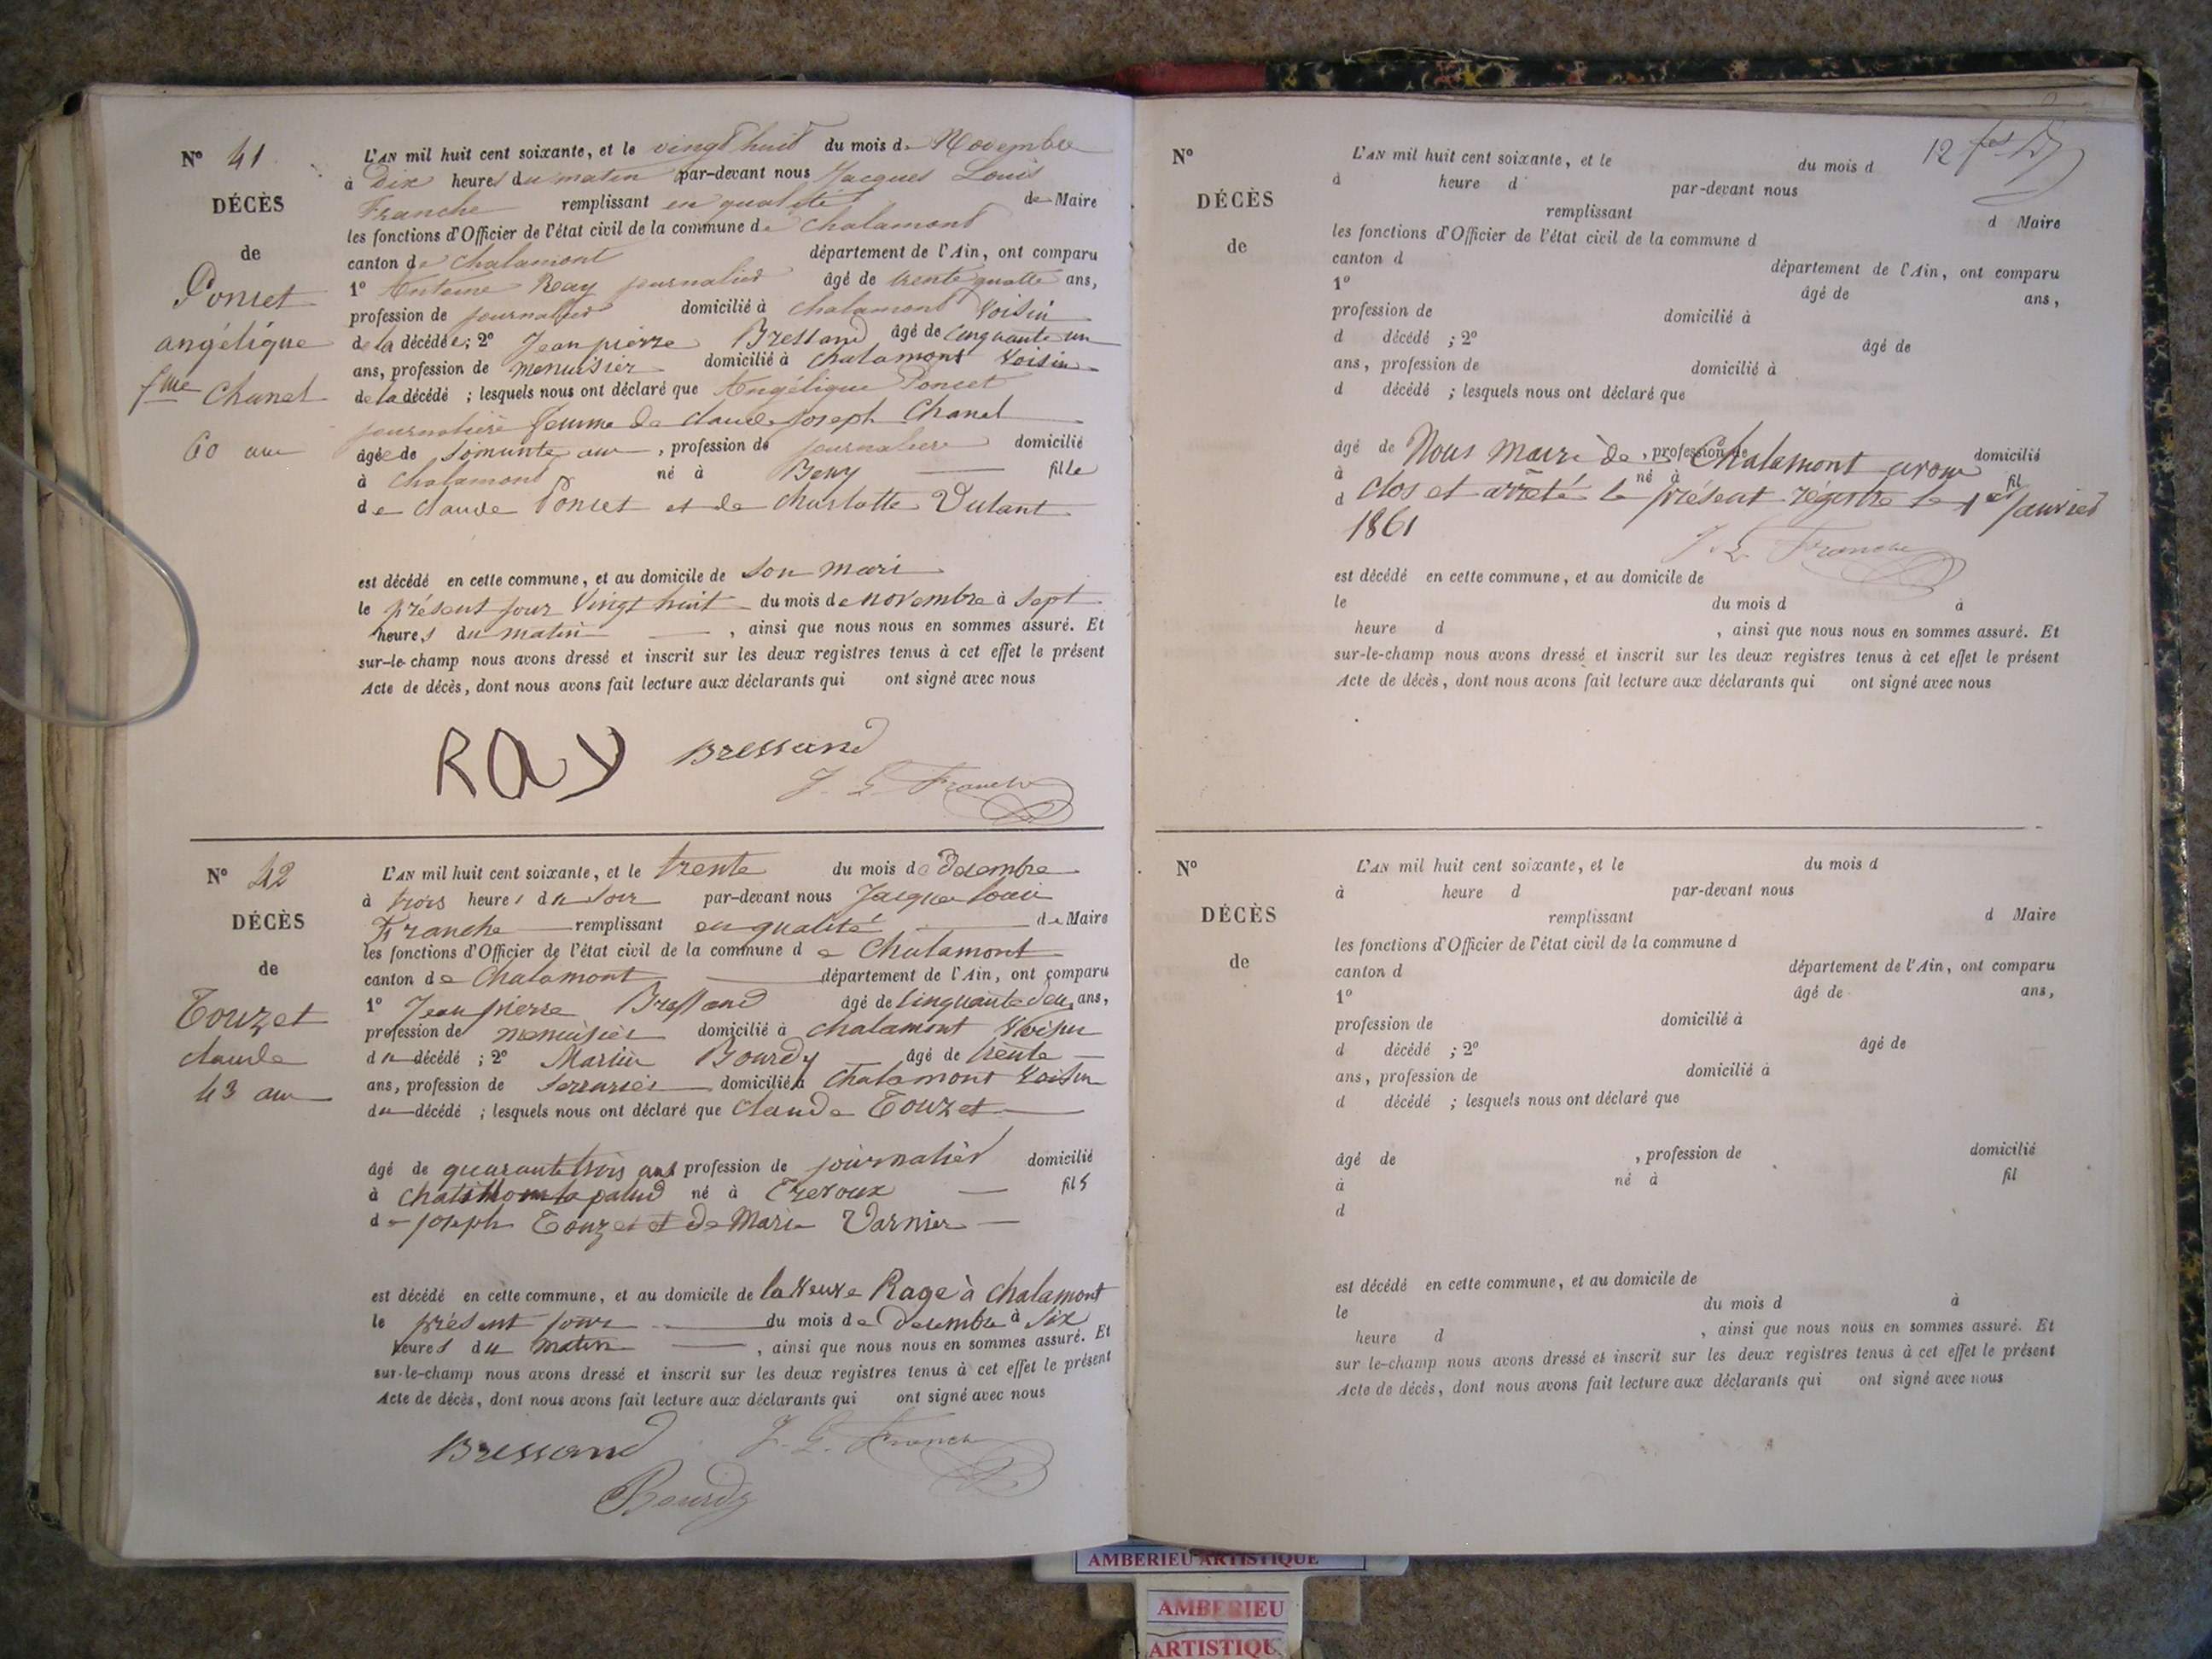 N° 41
DÉCÈS
de
Poncet
angélique
fme Chanel
60 ans
L'AN mil huit cent soixante, et le vingt huit du mois de Novembre
à Dix heures du matin par-devant nous Jacques Louis
Franche remplissant en qualité de Maire
les fonctions d'Officier de l'état civil de la commune de Chalamont
canton de Chalamont département de l'Ain, ont comparu
1° Antoine Ray journalier âgé de trente quatre ans,
profession de journalier domicilié à Chalamont Voisin
de la décédée; 2° Jean pierre Bressand âgé de Cinquante un
ans, profession de menuisier domicilié à Chalamont Voisin
de la décédé ; lesquels nous ont déclaré que Angélique Poncet
journalière femme de Claude Joseph Chanel
âgée de soixante ans, profession de journaliere domicilié
à Chalamont né à fille
de Claude Poncet et de Charlotte
est décédé en cette commune, et au domicile de son mari
le présent jour Vingt huit du mois de novembre à sept
heures du matin , ainsi que nous nous en sommes assuré. Et
sur-le-champ nous avons dressé et inscrit sur les deux registres tenus à cet effet le présent
Acte de décès, dont nous avons fait lecture aux déclarants qui ont signé avec nous
RAY Bressand
J. L. Franche
N° 42
DÉCÈS
de
Touzet
claude
43 ans
L'AN mil huit cent soixante, et le trente du mois de Decembre
à trois heures du soir par-devant nous Jacques Louis
Franche remplissant en qualité de Maire
les fonctions d'Officier de l'état civil de la commune de Chalamont
canton de Chalamont département de l'Ain, ont comparu
1° Jean pierre Bressand âgé de Cinquante deux ans,
profession de menuisier domicilié à Chalamont Voisin
du décédé ; 2° Martin Bourdy âgé de trente
ans, profession de serrurier domicilié à Chalamont Voisin
du décédé ; lesquels nous ont déclaré que Claude Touzet
âgé de quarante trois ans profession de journalier domicilié
à Chatillon la palud né à Trevoux fils
de joseph Touzet et de Marie Varnier
est décédé en cette commune, et au domicile de la Veuve Rage à Chalamont
le présent jour du mois de Decembre à six
heures du matin , ainsi que nous nous en sommes assuré. Et
sur-le-champ nous avons dressé et inscrit sur les deux registres tenus à cet effet le présent
Acte de décès, dont nous avons fait lecture aux déclarants qui ont signé avec nous
Bressand J. L. Franche
Bourdy
12
N°
DÉCÈS
de
L'AN mil huit cent soixante, et le du mois d
à heure d par-devant nous
remplissant d Maire
les fonctions d'Officier de l'état civil de la commune d
canton d département de l'Ain, ont comparu
1° âgé de ans,
profession de domicilié à
d décédé ; 2° âgé de
ans, profession de domicilié à
d décédé ; lesquels nous ont déclaré que
âgé de , profession de domicilié
Nous maire de Chalamont avons
à né à fil
clos et arrêté le présent régistre le 1er Janvier
d
1861
J. L. Franche
est décédé en cette commune, et au domicile de
le du mois d à
heure d , ainsi que nous nous en sommes assuré. Et
sur-le-champ nous avons dressé et inscrit sur les deux registres tenus à cet effet le présent
Acte de décès, dont nous avons fait lecture aux déclarants qui ont signé avec nous
N°
DÉCÈS
de
L'AN mil huit cent soixante, et le du mois d
à heure d par-devant nous
remplissant d Maire
les fonctions d'Officier de l'état civil de la commune d
canton d département de l'Ain, ont comparu
1° âgé de ans,
profession de domicilié à
d décédé ; 2° âgé de
ans, profession de domicilié à
d décédé ; lesquels nous ont déclaré que
âgé de , profession de domicilié
à né à fil
d
est décédé en cette commune, et au domicile de
le du mois d à
heure d , ainsi que nous nous en sommes assuré. Et
sur le-champ nous avons dressé et inscrit sur les deux registres tenus à cet effet le présent
Acte de décès, dont nous avons fait lecture aux déclarants qui ont signé avec nous
AMBERIEU ARTISTIQUE
AMBERIEU
ARTISTIQUE